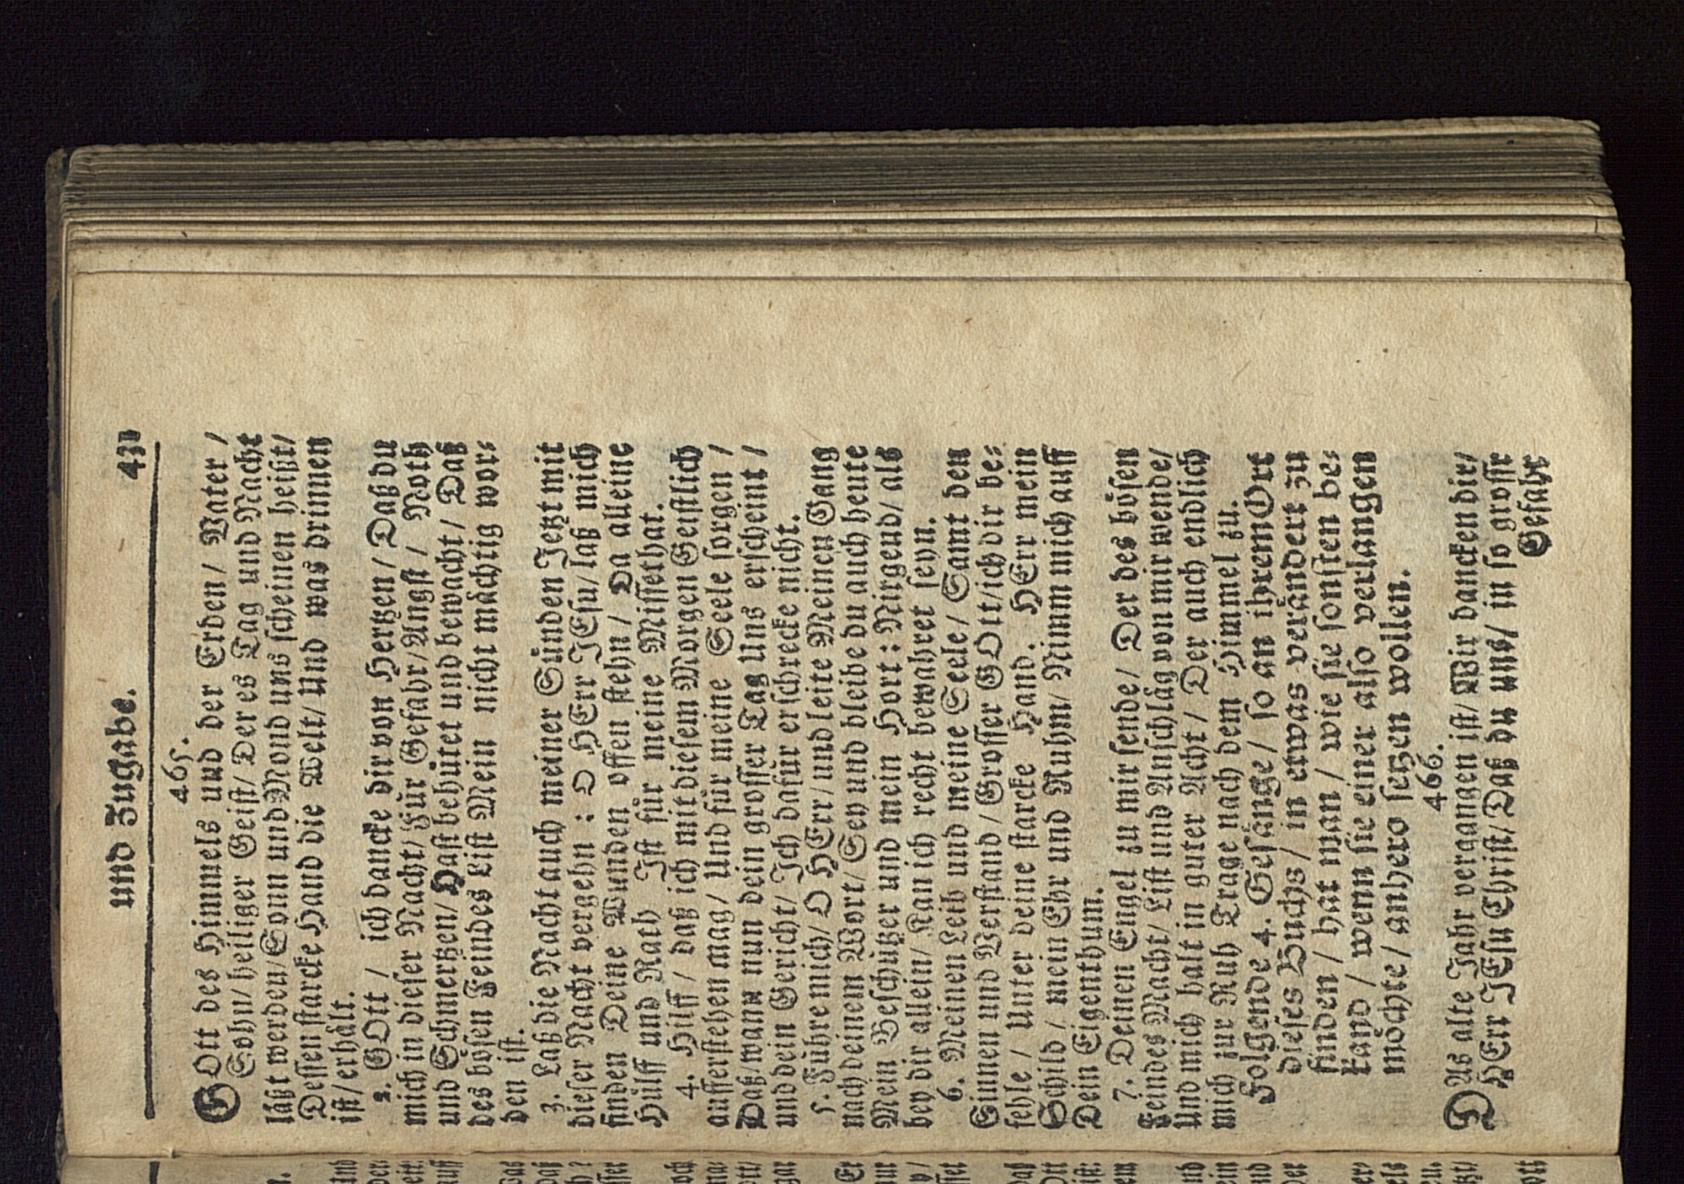 und Zugabe. 431
465.
GOtt des Himmels und der Erden / Vater /
Sohn / heiliger Geist / Der es Tag und Nacht
läßt werden / Sonn und Mond uns scheinen heißt /
Dessen starcke Hand die Welt / Und was drinnen
ist / erhält.
2. GOtt / ich dancke dir von Hertzen / Daß du
mich in dieser Nacht / Für Gefahr / Angst / Noth
und Schmertzen / Hast behütet und bewacht / Daß
des bösen Feindes List Mein nicht mächtig wor⸗
den ist.
3. Laß die Nacht auch meiner Sünden Jetzt mit
dieser Nacht vergehn : O HErr JEsu / laß mich
finden Deine Wunden offen stehn / Da alleine
Hülff und Rath Ist für meine Missethat.
4. Hilff / daß ich mit diesem Morgen Geistlich
aufferstehen mag / Und für meine Seele sorgen /
Daß / wann nun dein grosser Tag uns erscheint /
und dein Gericht / Ich dafür erschrecke nicht.
5. Führe mich / O HErr / und leite Meinen Gang
nach deinem Wort / Sey und bleibe du auch heute
Mein Beschützer und mein Hort : Nirgend / als
bey dir allein / Kan ich recht bewahret seyn.
6. Meinen Leib und meine Seele / Samt den
Sinnen und Verstand / Grosser GOtt / ich dir be⸗
fehle / Unter deine starcke Hand. HErr mein
Schild / mein Ehr und Ruhm / Nimm mich auff
Dein Eigenthum.
7. Deinen Engel zu mir sende / Der des bösen
Feindes Macht / List und Anschläg von mir wende /
Und mich halt in guter Acht / Der auch endlich
mich zur Ruh Trage nach dem Himmel zu.
Folgende 4. Gesänge / so an ihrem Ort
dieses Buchs / in etwas verändert zu
finden / hat man / wie sie sonsten be⸗
kand / wenn sie einer also verlangen
möchte / anhero setzen wollen.
466.
DAs alte Jahr vergangen ist / Wir dancken dir /
HErr JEsu Christ / Daß du uns / in so grosse
Gefahr